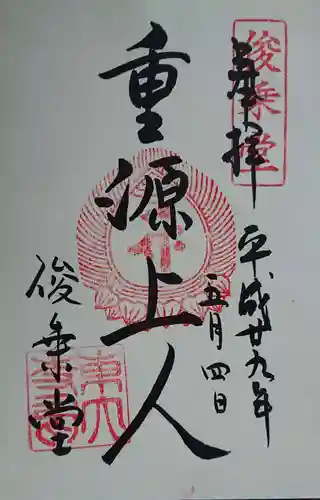 奉拝
俊乗堂
平成廿九年
五月四日
重源上人
俊乗堂